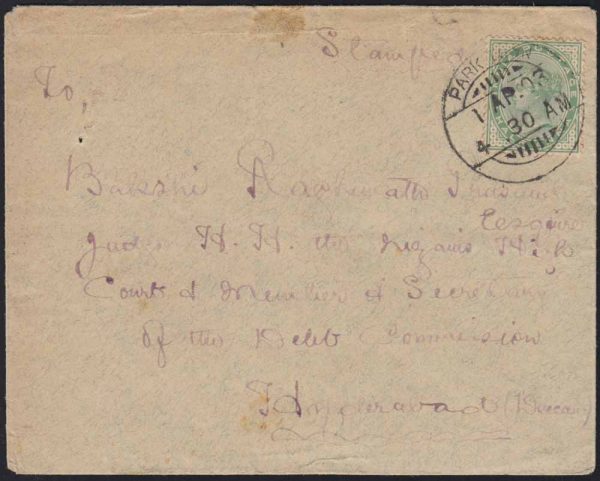 Stamped
PARK
1 AP.03
4 30 AM
To,
Bakshi
Esquire
Judge H. H. the Nizam's High
Court & Member & Secretary
of the Debt Commission
Hyderabad (Deccan)